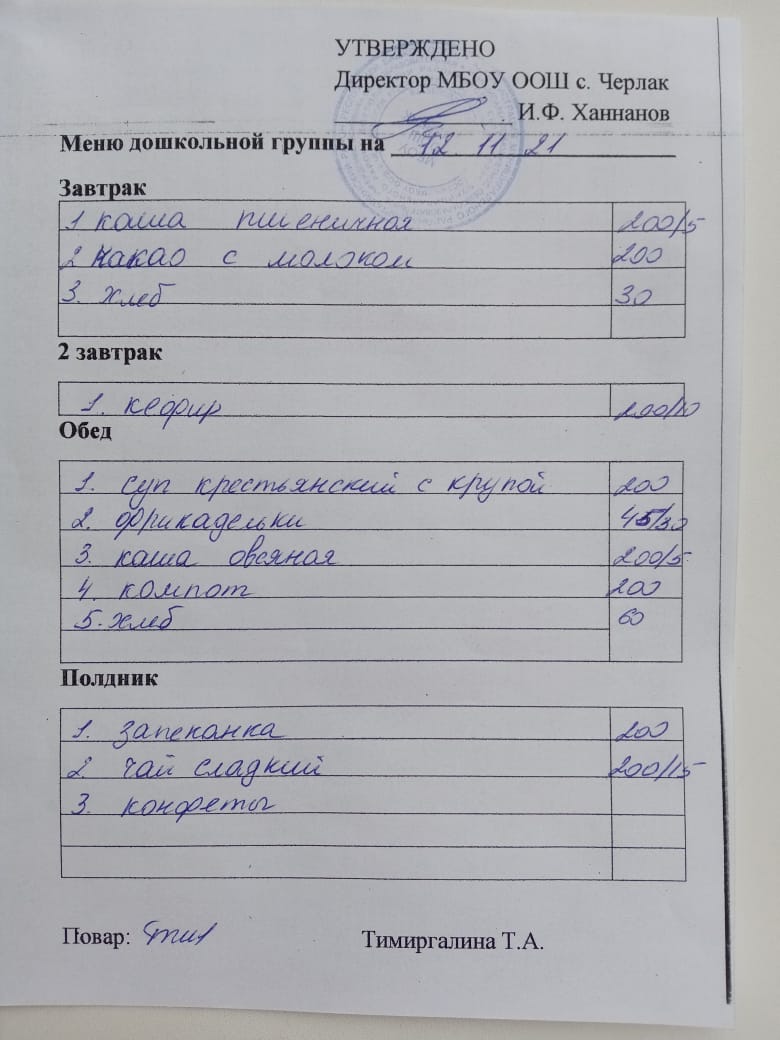 УТВЕРЖДЕНО
Директор МБОУ ООШ с. Черлак
И.Ф. Ханнанов
Меню дошкольной группы на 12. 11. 21
Завтрак
1 каша пшеничная 200/5
2 какао с молоком 200
3. хлеб 30
2 завтрак
1. кефир 200/10
Обед
1. суп крестьянский с крупой 200
2. фрикадельки 45/30
3. каша овсяная 200/5
4. компот 200
5. хлеб 60
Полдник
1. запеканка 200
2. чай сладкий 200/15
3. конфеты
Повар: Тимиргалина Т.А.